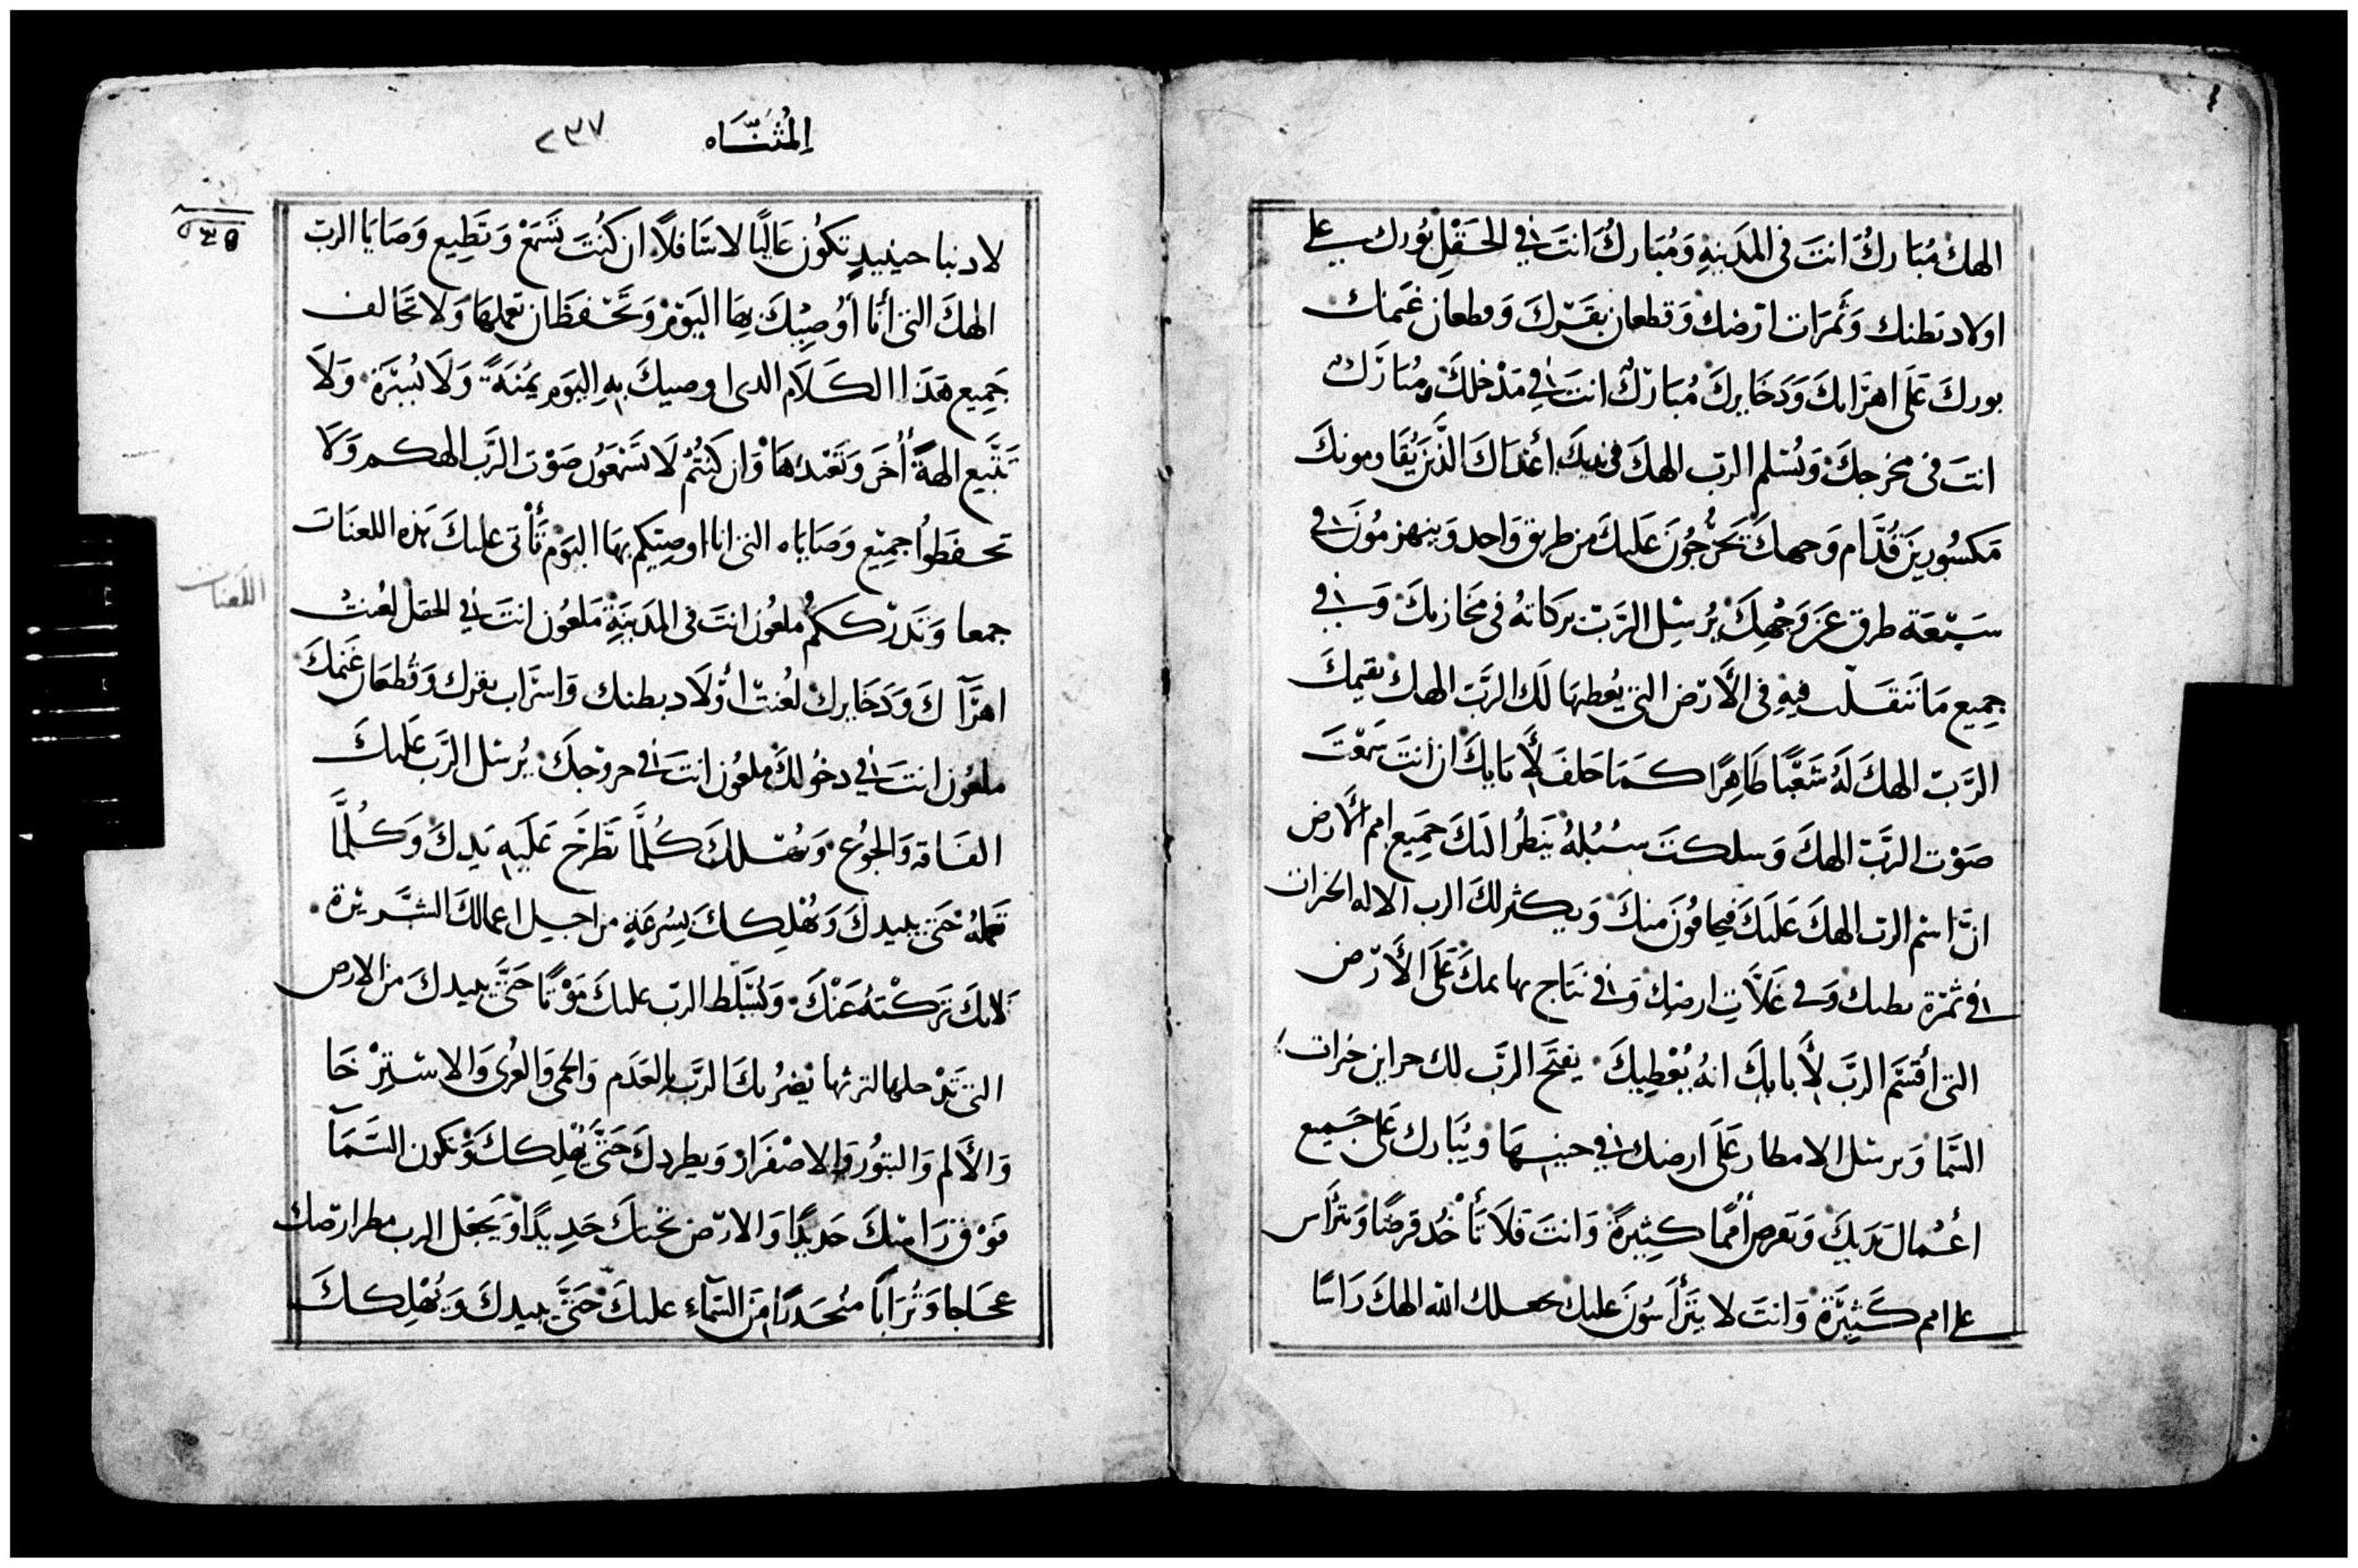 الهك مُبَارك انتَ فى المَدَينهِ وَمُبَارك انتَ فى الحَقْلِ بُورك على
اولاد بَطنك وَثَمَرَات ارْضك وَقطعان بَقَرْكَ وَقطعان غَنمك
بورك عَلَى اهرَايكَ وَدَخَايركَ مُبَارَكٌ انتَ فى مَدْخلكَ ومُبَارَكٌ
انتَ فى مخرجكَ وَيُسْلم الربّ الهكَ فى يديكَ أَعْدَاكَ الذَّينَ يُقَاومونكَ
مَكسُورِينَ قُدَّام وَجهكَ يَخْرُجُونَ عَليكَ من طريق وَاحد وَينهزمُونَ فى
سَبْعَة طرق عَن وَجْهِكَ يُرْسِل الرَّبّ بَركَاتهُ فى مَخَازنكَ وَفى
جمِيع مَا تَنقَلب فيهِ فى الأَرْض التى يُعطيهَا لَك الرَّبّ الهك يقيمكَ
الرَّبّ الهكَ لَهُ شَعْبًا طَاهِرًا كَمَا حَلفَ لأَبَايكَ ان انتَ سَمَعْتَ
صَوْت الرَّبّ الهكَ وَسلكتَ سُبُلهُ يَنظُر اليَكَ جَمِيع امم الأَرض
انّ اسْم الربّ الهكَ عَليَكَ فيخافُونَ منكَ وَيكثر لكَ الرب الاله الخيرات
فى ثمَرة بطنك وَفى غَلاَّتِ ارضك وَفى نتَاج بهايمكَ عَلَى الأَرْض
التى أَقسَم الربَّ لأَبايكَ انهُ يُعْطِيكَ يفتَح الرَّب لك خزاين خيرات
السَّما وَيرسْل الامطار عَلَى ارضك فى حينهَا وَيُبَارك عَلى جَميع
أعْمال يَدَيكَ وَتقرض أُممًا كثِيرةً وَانتَ فَلاَ تَأخُد قرضًا وَتَرَأَس
على امم كَثِيرَة وَانتَ لا يَتَرَأَسُونَ عليك يجعلك الله الهكَ رَاسًا
المُثنَّاه ٢٣٧
لا دنبا حينيدٍ تكوُن عَاليًا لا سَافلاً ان كنُتَ تَسْمَعْ وَتَطِيع وَصَايَا الربّ
الهكَ التى أنَا أُوصِيْكَ بِهَا اليَوْمْ وَتَحْفَظ ان تعملهَا وَلا تَخَالف
جَمِيع هَذَا الكَلاَم الدى اوصيكَ بهِ اليَوم يمُنَةً وَلَا يُسْرَة وَلَا
تَتَّبِع الهةً أُخَر وَتَعْبُدهَا وَان كَنتُمْ لَا تَسْمَعَوُن صَوْت الرَّب الهكم وَلَا
تحفَظُوا جمِيْع وَصَايَاه التى انا اوصِيكم بهَا اليَوْم تَأْتى عليكَ هَذه اللعنَات
اللعنات
جمعا وَتَدْرككم مَلعُون انتَ فى المَدَينَةِ مَلعُون انتَ فى الحقل لعُنتْ
اهرَآكَ وَدَخَايرك لُعنتْ أَوْلَاد بطنك وَاسرَاب بقرك وَقُطعَان غَنمكَ
ملعُون انتَ فى دخُولكَ ملعُون انتَ فى خروجكَ يُرسْل الرَّب عَليكَ
الفَاقه وَالجُوع كُلمَّا تَطْرَح عَلَيهِ يَدِكَ وَكُلمَّا
تعَملهُ حَتىَّ يبيدكَ وَيُهْلِككَ بِسُرعَةٍ من اجل اعمالكَ الشَّرِيْرة
لانكَ تَرَكْتهُ عَنْكَ وَيُسَّلط الربّ عليكَ مَوْتًا حَتىَّ يبيدكَ من الارض
التى تَدْخلها لترثها يَضرُبكَ الرَّب بالعَدَم وَالحمى وَالعُرى وَالاسْتِرْخَا
وَالأَلم وَالبتوُر وَالاصْفرَار وَيطردكَ حَتىَّ يُهْلِككَ وَتكون السَّمَآ
فَوْق رَاسْكَ حَديدًا وَالارْض تحْتكَ حَدِيدًا وَيَجعَل الرب مطر ارْضك
عجَاجًا وَتُرَابًا مُنحَدرًا مَن السَّمآء عليكَ حَتَّى يبيدكَ وَيُهْلِككَ